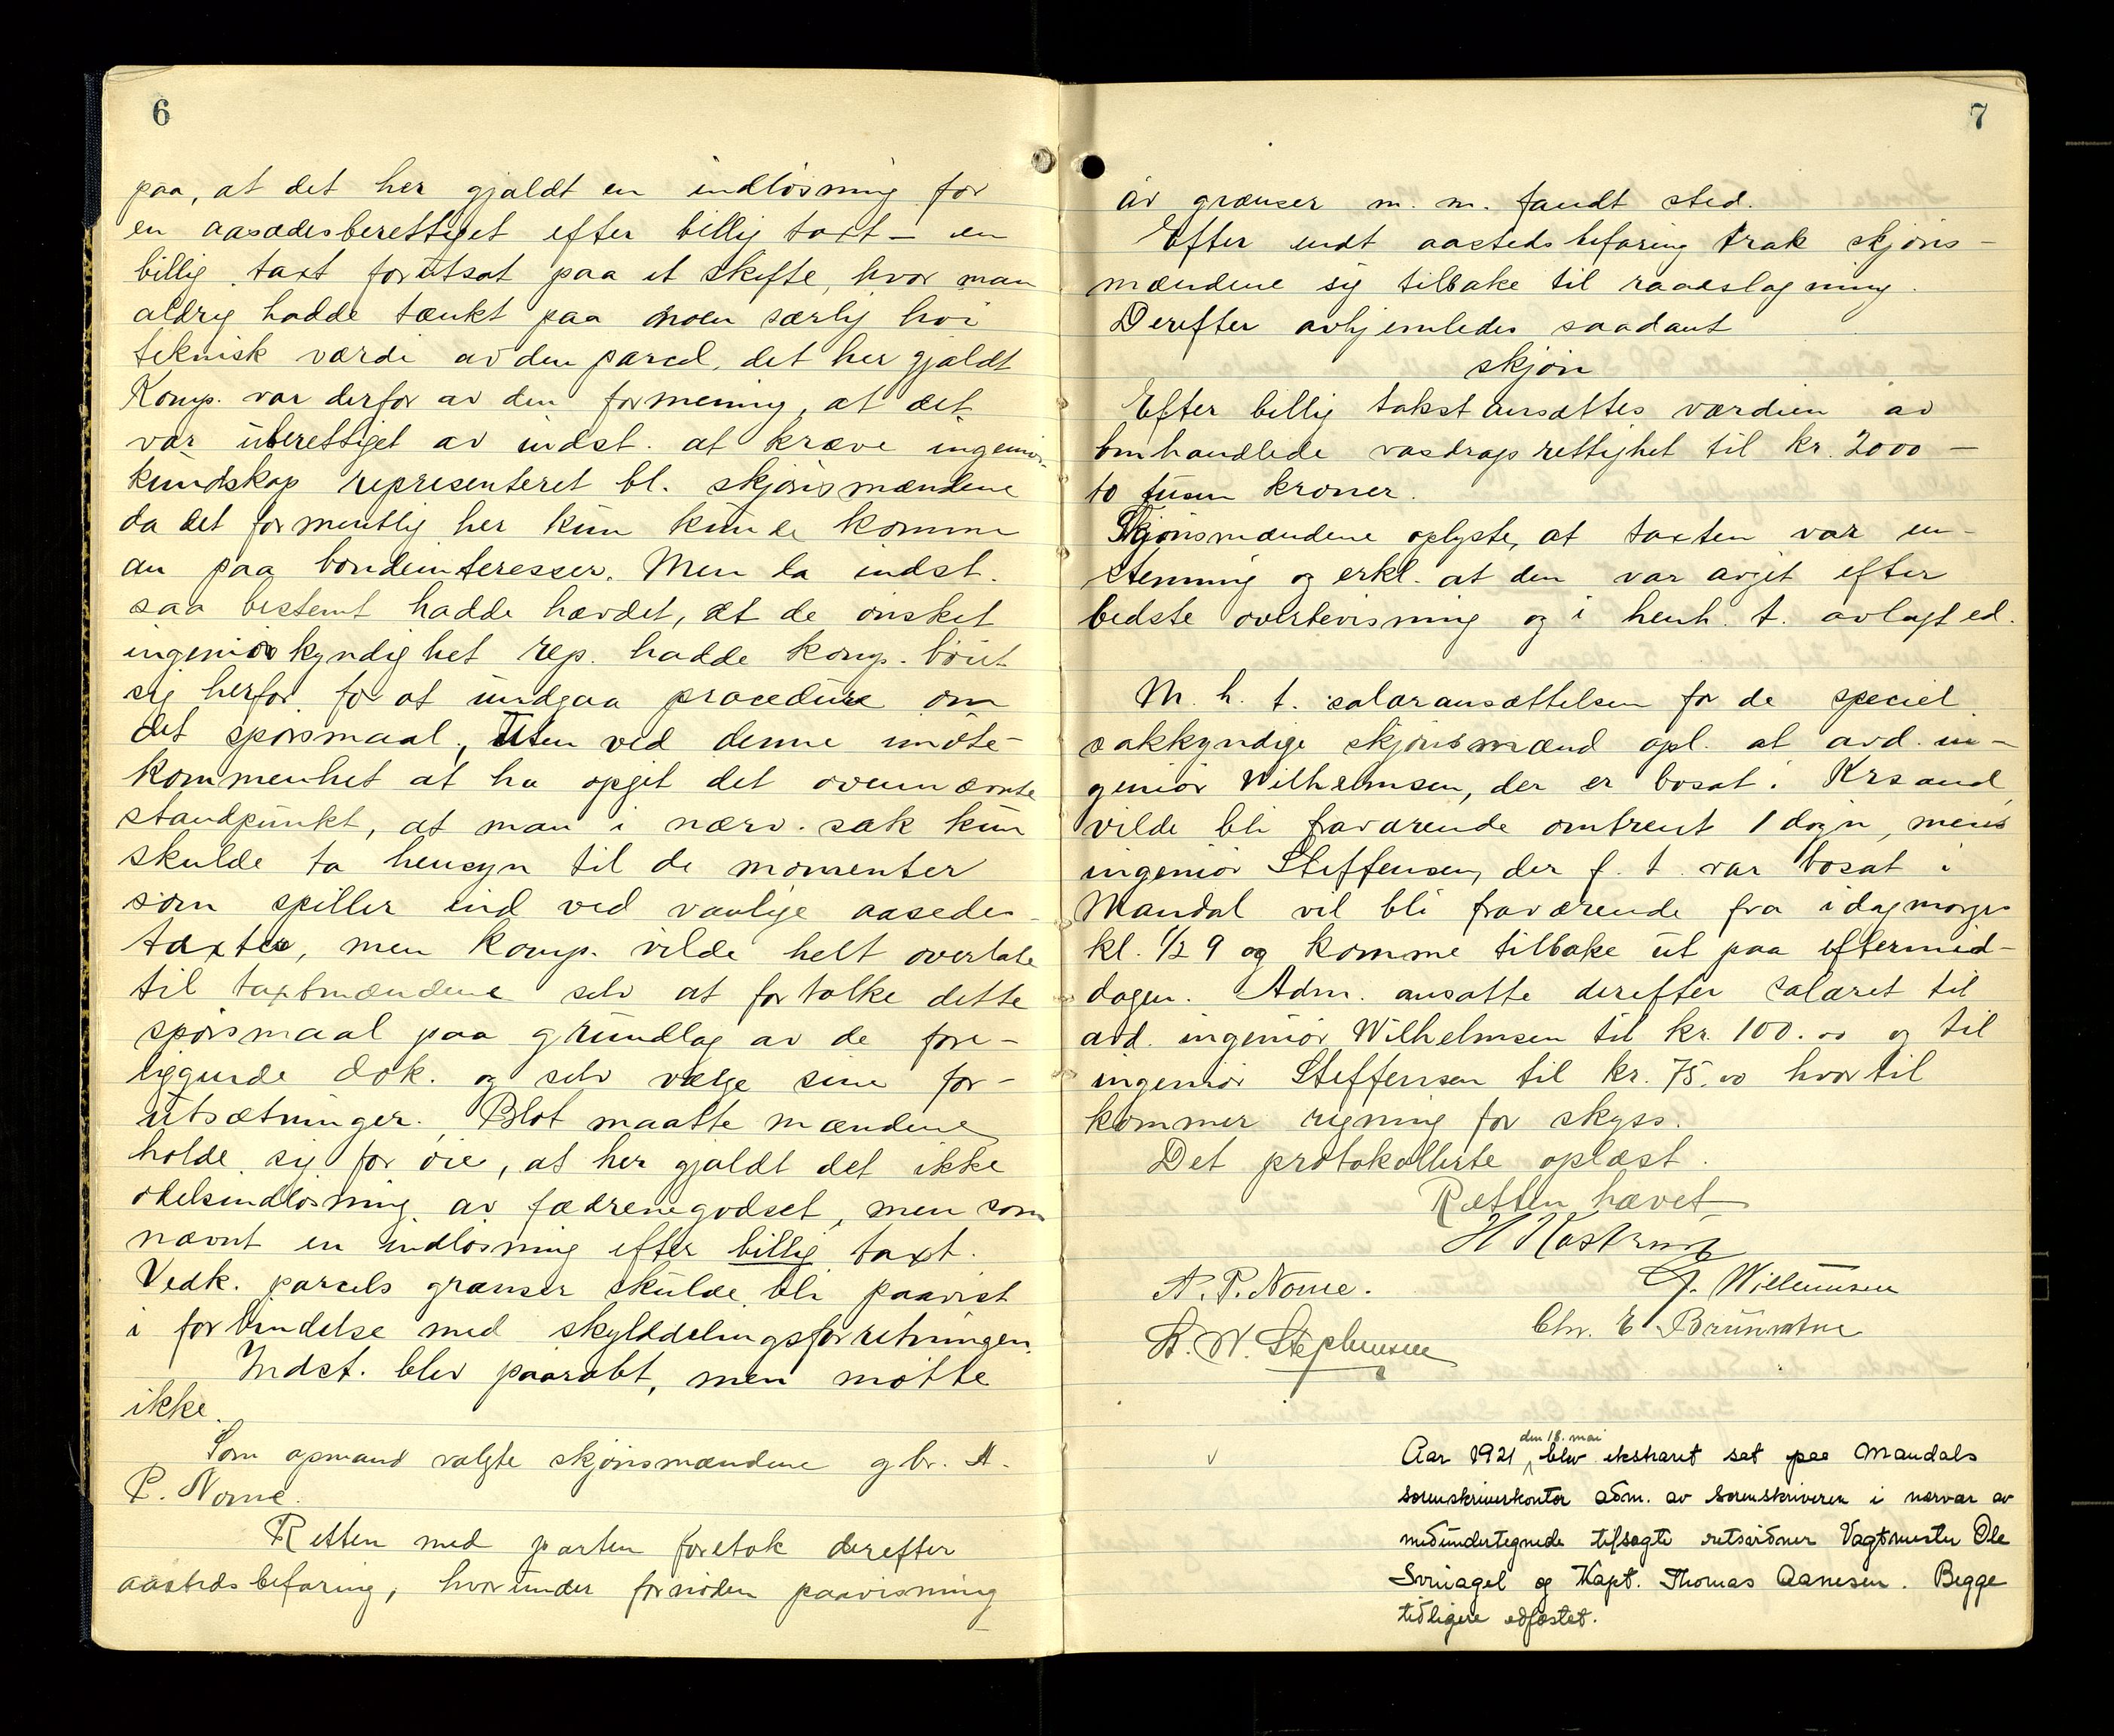 6
paa, at det her gjaldt en indløsning for
en aasædesberettiget efter billig taxt – en
billig taxt forutsat paa et skifte, hvor man
aldrig hadde tænkt paa noen særlig høi
teknisk værdi av den parcel, det her gjaldt
Komp. var derfor av den formening, at det
var uberettiget av indst. at kræve ingeniør-
kundskap repræsenteret bl. skjønsmændene
da det formentlig her kun kunde komme
an paa bondeinteresser. Men da indst.
saa bestemt hadde hævdet, at de ønsket
ingeniørkyndighet rep. hadde komp. bøiet
sig herfor for at undgaa procedure om
det spørsmaal, Uten ved denne imøte-
kommenhet at ha opgit det ovennævnte
standpunkt, at man i nærv. sak kun
skulde ta hensyn til de momenter
som spiller ind ved vanlige aasædes-
taxter, men komp. vilde helt overlate
til taxtmændene selv at fortolke dette
spørsmaal paa grundlag av de fore-
liggende dok. og selv vælge sine for-
utsætninger. Blot maatte mændene
holde sig for øie, at her gjaldt det ikke
odelsindløsning av fædrenegodset, men som
nævnt en indløsning efter billig taxt.
Vedk. parcels grænser skulde bli paavist
i forbindelse med skylddelingsforretningen.
Indst. blev paaropt, men møtte
ikke.
Som opmand valgte skjønsmændene gbr. A.
P. Nome.
Retten med parten foretok derefter
aastedsbefaring, hvorunder fornøden paavisning
7
av grænser m. m. fandt sted.
Efter endt aastedsbefaring trak skjøns-
mændene sig tilbake til raadslagning.
Derefter avhjemledes saadant
skjøn
Efter billig takst ansættes værdien av
omhandlede vasdragsrettighet til kr. 2000 –
to tusen kroner.
Skjønsmændene oplyste, at taxten var en-
stemmig og erkl. at den var avgit efter
bedste overbevisning og i henh. t. avlagt ed.
M. h. t. salæransættelsen for de speciel
sakkyndige skjønsmænd opl. at avd. in-
geniør Wilhelmsen, der er bosat i Krsand
vilde bli fraværende omtrent 1 døgn, mens
ingeniør Steffensen, der f. t. var bosat i
Mandal vil bli fraværende fra idagmorges
kl. ½ 9 og komme tilbake ut paa eftermid-
dagen. Adm. ansatte derefter salæret til
avd. ingeniør Wilhelmsen til kr. 100.00 og til
ingeniør Steffensen til kr. 75.00 hvortil
kommer regning for skyss.
Det protokollerte oplæst.
Retten hævet
H Kastrup
A. P. Nome.
J. Willumsen
Chr. E Brunvatne
S. W. Stephensen
Aar 1921 den 18. mai blev ekstraret sat paa Mandals
sorenskriverkontor adm. av sorenskriveren i nærvær av
medundertegnede tilsagte retsvidner Vagtmester Ole
Svinagel og Kapt. Thomas Aanesen. Begge
tidligere edfæstet.